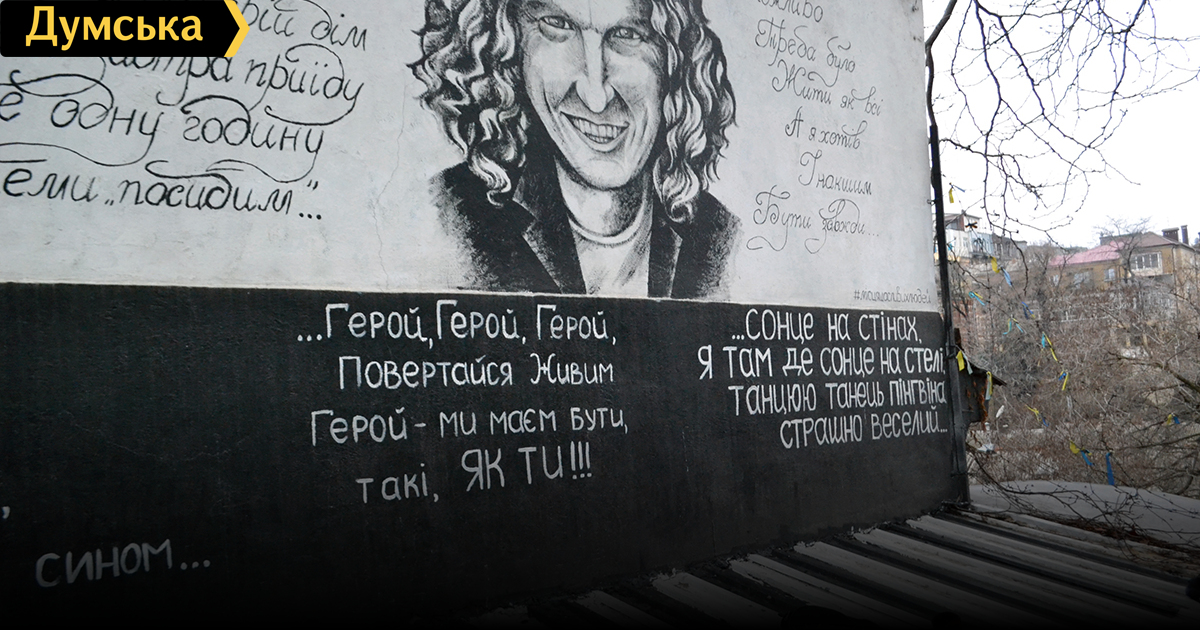 Думська
дім
завтра приїду
одну годину
теми „посидим"...
Треба було
Жити як всі
А я хотів
Інакшим
Бути завжди...
...Герой, Герой, Герой,
Повертайся Живим
Герой - ми маєм бути,
такі, ЯК ТИ!!!
...сонце на стінах,
Я там де сонце на стелі
танцюю танець пінгвіна
страшно веселий...
,
сином...